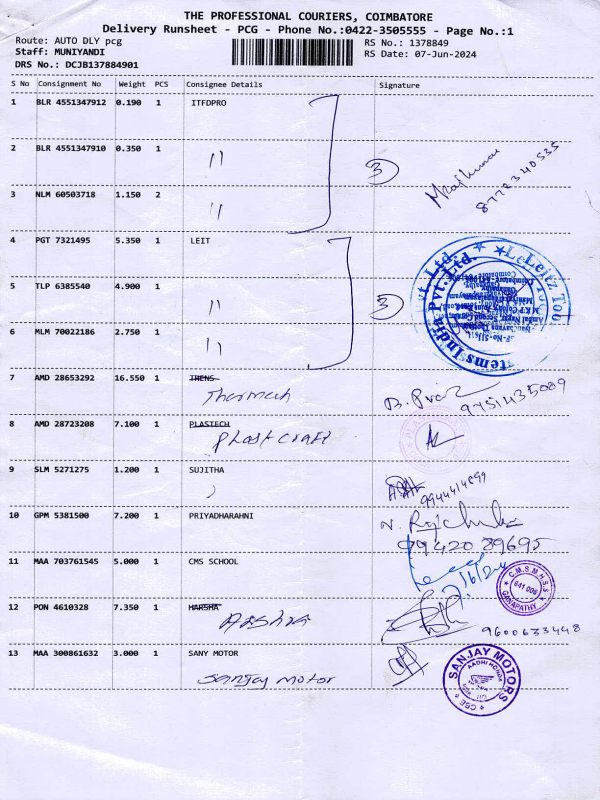 THE PROFESSIONAL COURIERS, COIMBATORE
Delivery Runsheet - PCG - Phone No.:0422-3505555 - Page No.:1
Route: AUTO DLY pcg RS No.: 1378849
Staff: MUNIYANDI RS Date: 07-Jun-2024
DRS No.: DCJB137884901
S No Consignment No Weight PCS Consignee Details Signature
1 BLR 4551347912 0.190 1 ITFDPRO
2 BLR 4551347910 0.350 1 〃
3
8778340535
3 NLM 60503718 1.150 2 〃
4 PGT 7321495 5.350 1 LEIT
5 TLP 6385540 4.900 1 〃
3
6 MLM 70022186 2.750 1 〃
7 AMD 28653292 16.550 1 TRENS
Thermech
9751435089
8 AMD 28723208 7.100 1 PLASTECH
Plast craft
9 SLM 5271275 1.200 1 SUJITHA
9944414899
10 GPM 5381500 7.200 1 PRIYADHARAHNI
9942089695
11 MAA 703761545 5.000 1 CMS SCHOOL
C.M.S.M.H.S.S
641 006
GANAPATHY
12 PON 4610328 7.350 1 HARSHA
9600633448
13 MAA 300861632 3.000 1 SANY MOTOR
Sanjay motor
SANJAY MOTORS
CBE